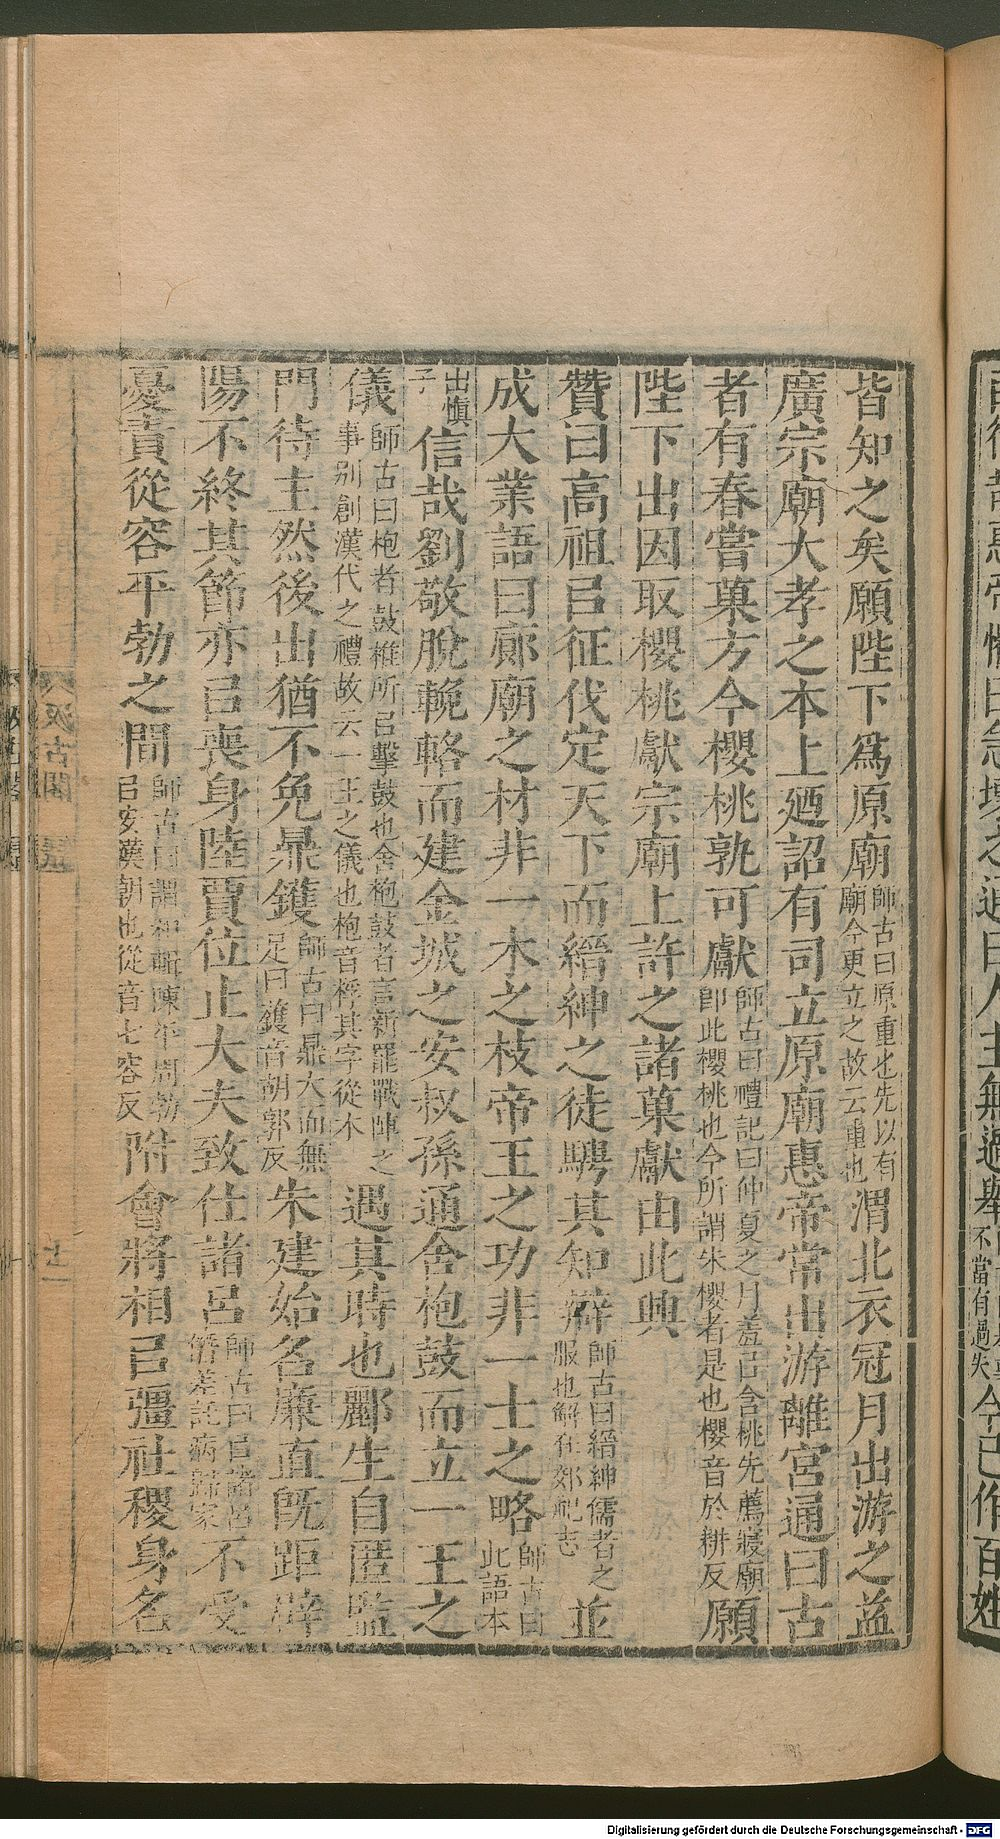 皆知之矣願陛下爲原廟師古曰原重也先以有廟今更立之故云重也渭北衣冠月出游之益
廣宗廟大孝之本上廼詔有司立原廟惠帝常出游離宮通曰古
者有春嘗菓方今櫻桃孰可獻師古曰禮記曰仲夏之月羞㠯含桃先薦寢廟卽此櫻桃也今所謂朱櫻者是也櫻音於耕反願
陛下出因取櫻桃獻宗廟上許之諸菓獻由此興
贊曰高祖㠯征伐定天下而縉紳之徒騁其知辯師古曰縉紳儒者之服也解在郊祀志並
成大業語曰廊廟之材非一木之枝帝王之功非一士之略師古曰此語本
出慎子信哉劉敬脫輓輅而建金城之安叔孫通舍枹鼓而立一王之
儀師古曰枹者鼓椎所㠯擊鼓也舍枹鼓者言新罷戰陣之事別創漢代之禮故云一王之儀也枹音桴其字從木遇其時也酈生自匿監
門待主然後出猶不免鼎鑊師古曰鼎大而無足曰鑊音胡郭反朱建始名廉直旣距辟
陽不終其節亦㠯喪身陸賈位止大夫致仕諸呂師古曰㠯諸呂僭差託病歸家不受
憂責從容平勃之間師古曰謂和輯陳平周勃㠯安漢朝也從音七容反附會將相㠯彊社稷身名
汲古閣
不當有過失今已作百姓
Digitalisierung gefördert durch die Deutsche Forschungsgemeinschaft - DFG